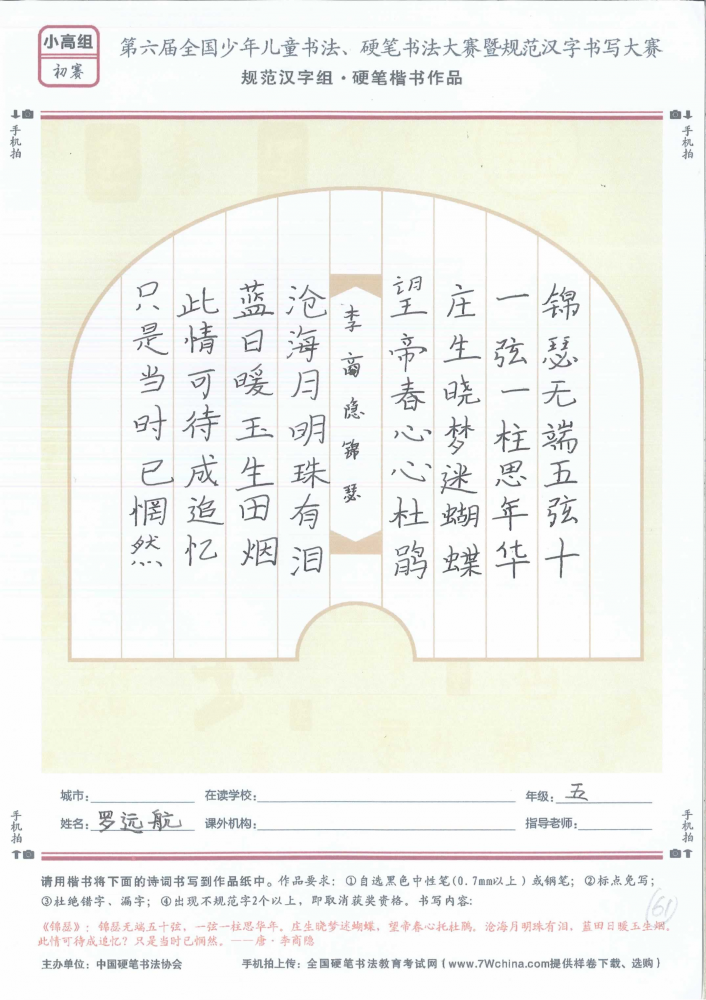 小高组
初赛
第六届全国少年儿童书法、硬笔书法大赛暨规范汉字书写大赛
规范汉字组·硬笔楷书作品
手机拍
手机拍
锦瑟无端五弦十
一弦一柱思年华
庄生晓梦迷蝴蝶
望帝春心心杜鹃
李商隐锦瑟
沧海月明珠有泪
蓝日暖玉生田烟
此情可待成追忆
只是当时已惘然
城市：
在读学校：
年级：五
姓名：罗远航
课外机构：
指导老师：
手机拍
手机拍
请用楷书将下面的诗词书写到作品纸中。作品要求：①自选黑色中性笔(0.7mm以上)或钢笔；②标点免写；
③杜绝错字、漏字；④出现不规范字2个以上，即取消获奖资格。书写内容：
61
《锦瑟》：锦瑟无端五十弦，一弦一柱思华年。庄生晓梦迷蝴蝶，望帝春心托杜鹃。沧海月明珠有泪，蓝田日暖玉生烟。
此情可待成追忆？只是当时已惘然。——唐·李商隐
主办单位：中国硬笔书法协会
手机拍上传：全国硬笔书法教育考试网（www.7Wchina.com提供样卷下载、选购）